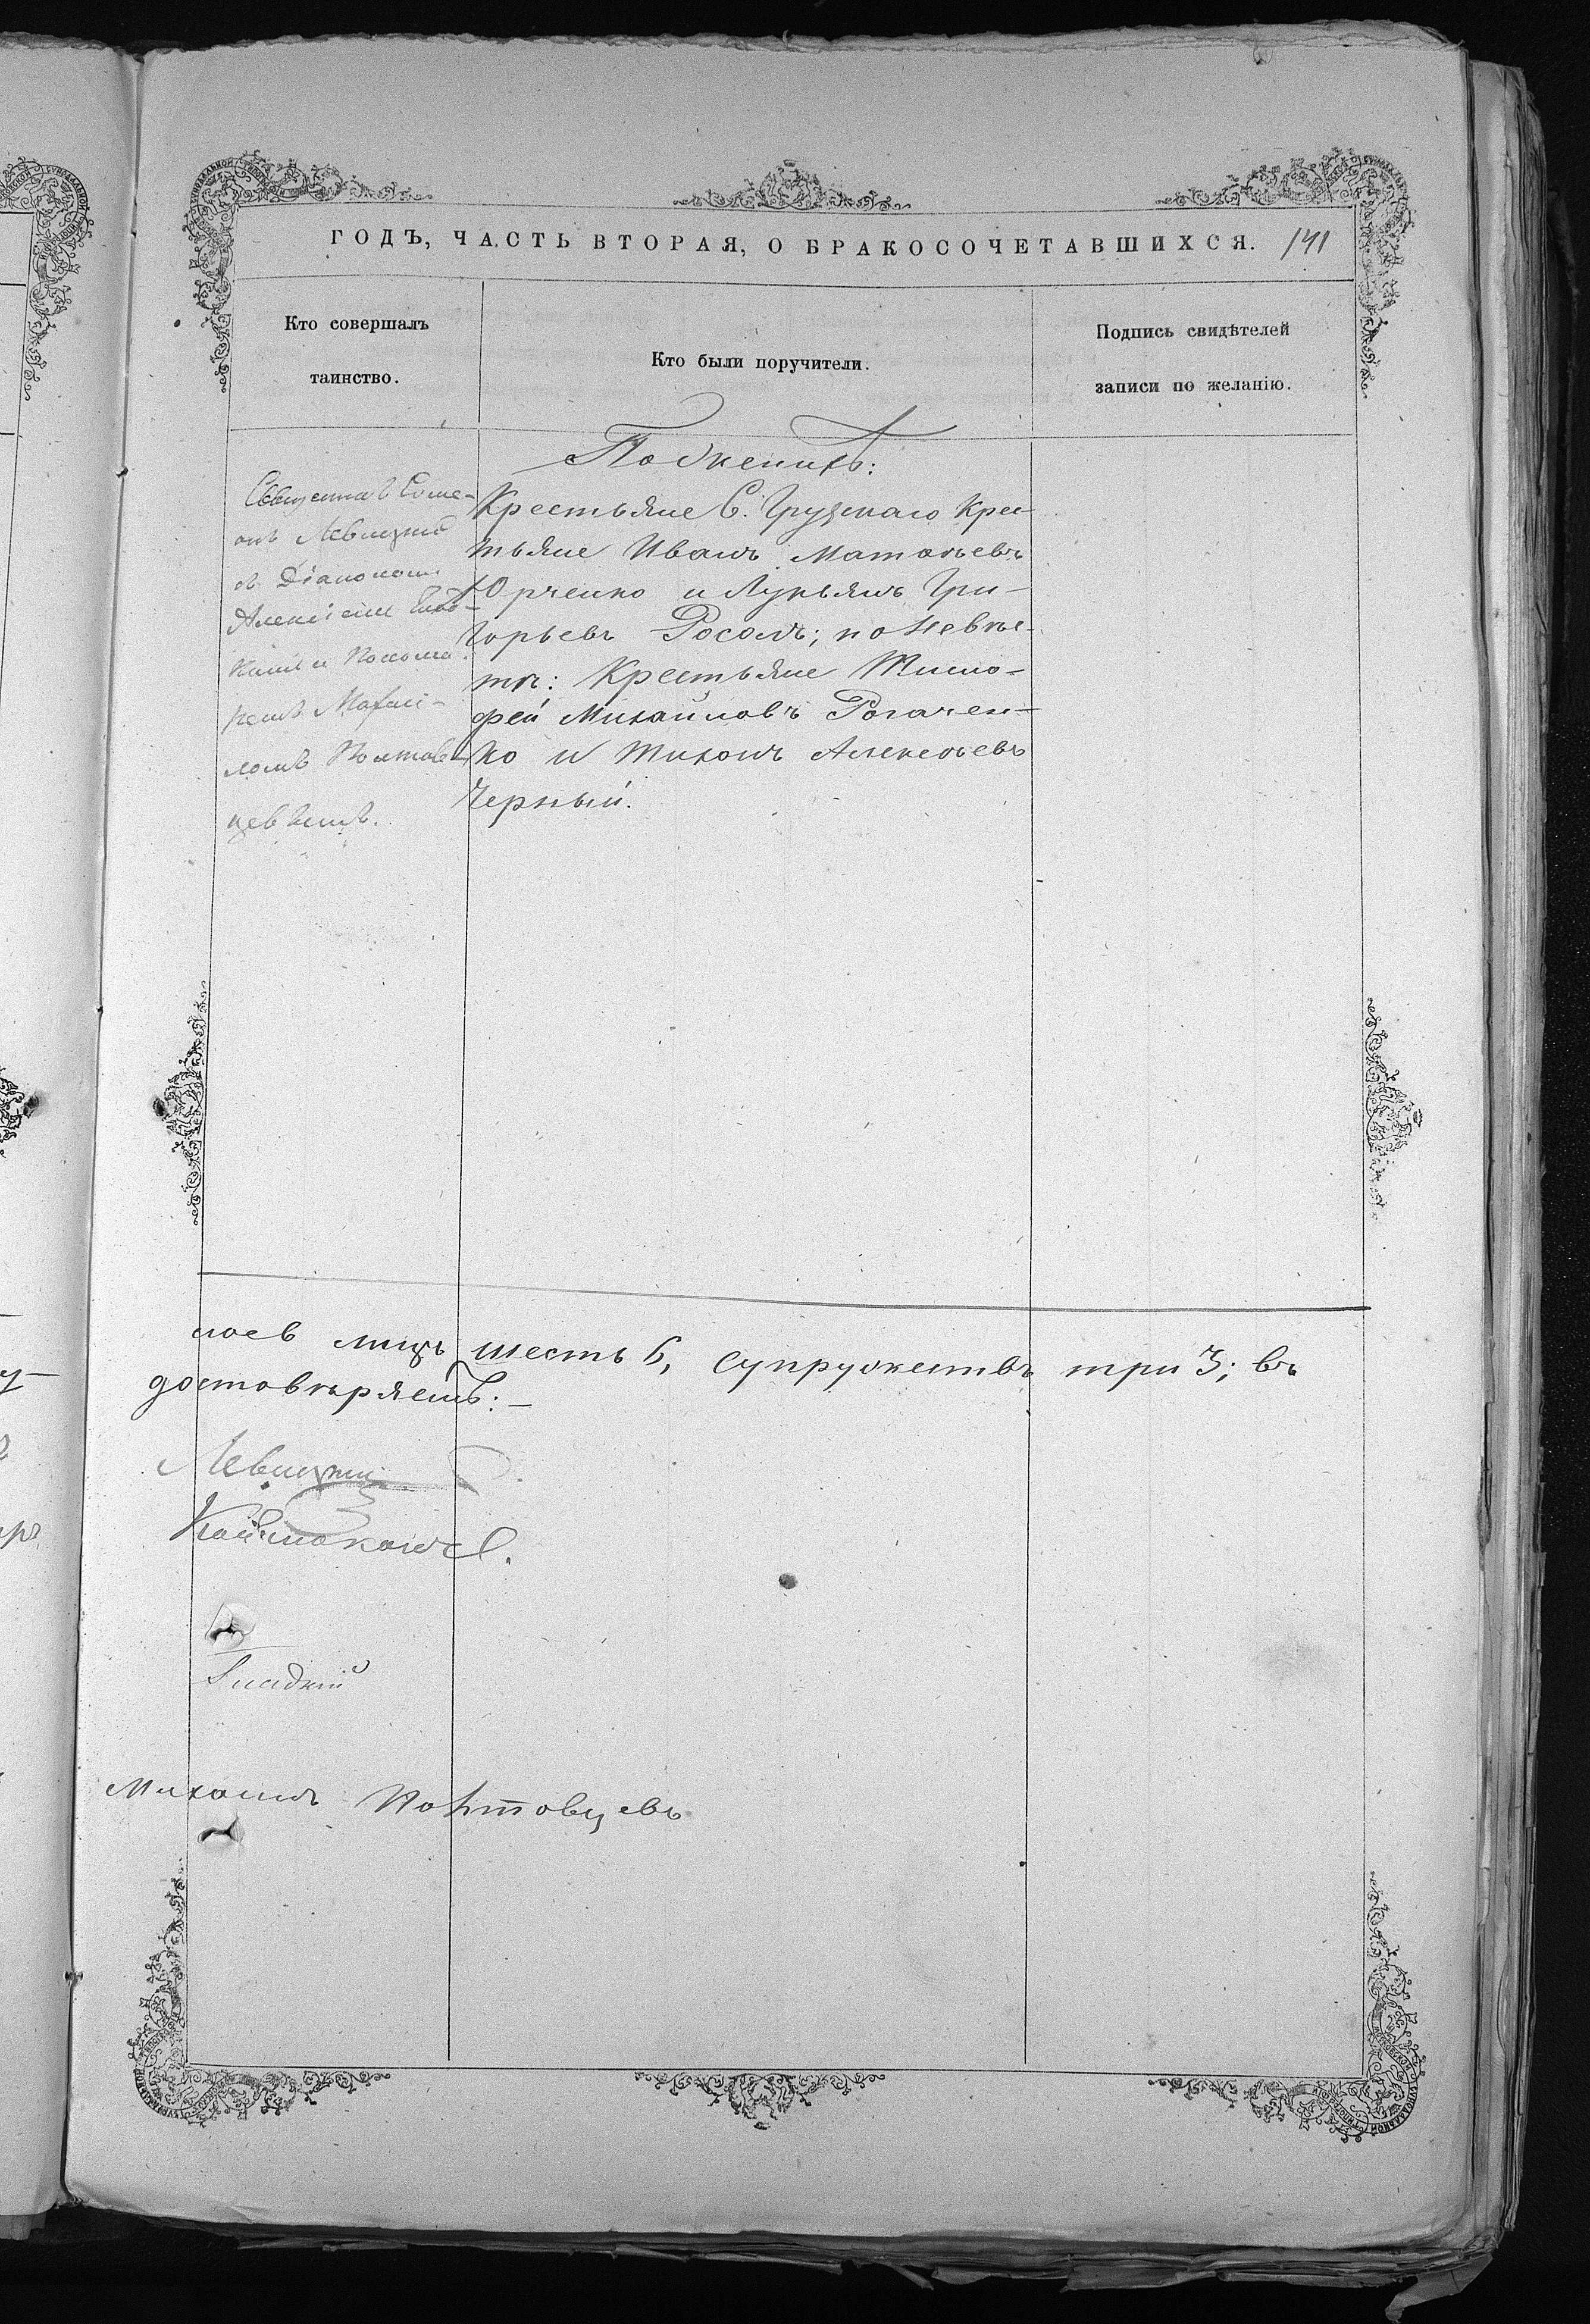 ГОДЪ, ЧАСТЬ ВТОРАЯ, О БРАКОСОЧЕТАВШИХСЯ. 141
Кто совершалъ
таинство.
Кто были поручители.
Подпись свидѣтелей
записи по желанію.
Левицкій
съ Діакономъ
Алексіемъ
и Понома-
ремъ Михаи-
ломъ Полтав-
цевымъ.
По женихѣ:
Крестьяне С. Грузскаго Крес
тьяне Иванъ Матвѣевъ
Юрченко и Лукьянъ Гри-
горьевъ Росолъ; по невѣс-
тѣ: Крестьяне Тимо-
фей Михайловъ Рогачен-
ко и Тихонъ Алексѣевъ
Черный.
лицъ шесть 6, супружествъ три 3; въ
достовѣряемъ:-
Левицкій
Гладкій
Михаилъ Полтавцевъ